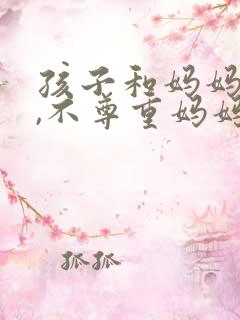 孩子和妈妈
,不尊重妈妈
孤孤